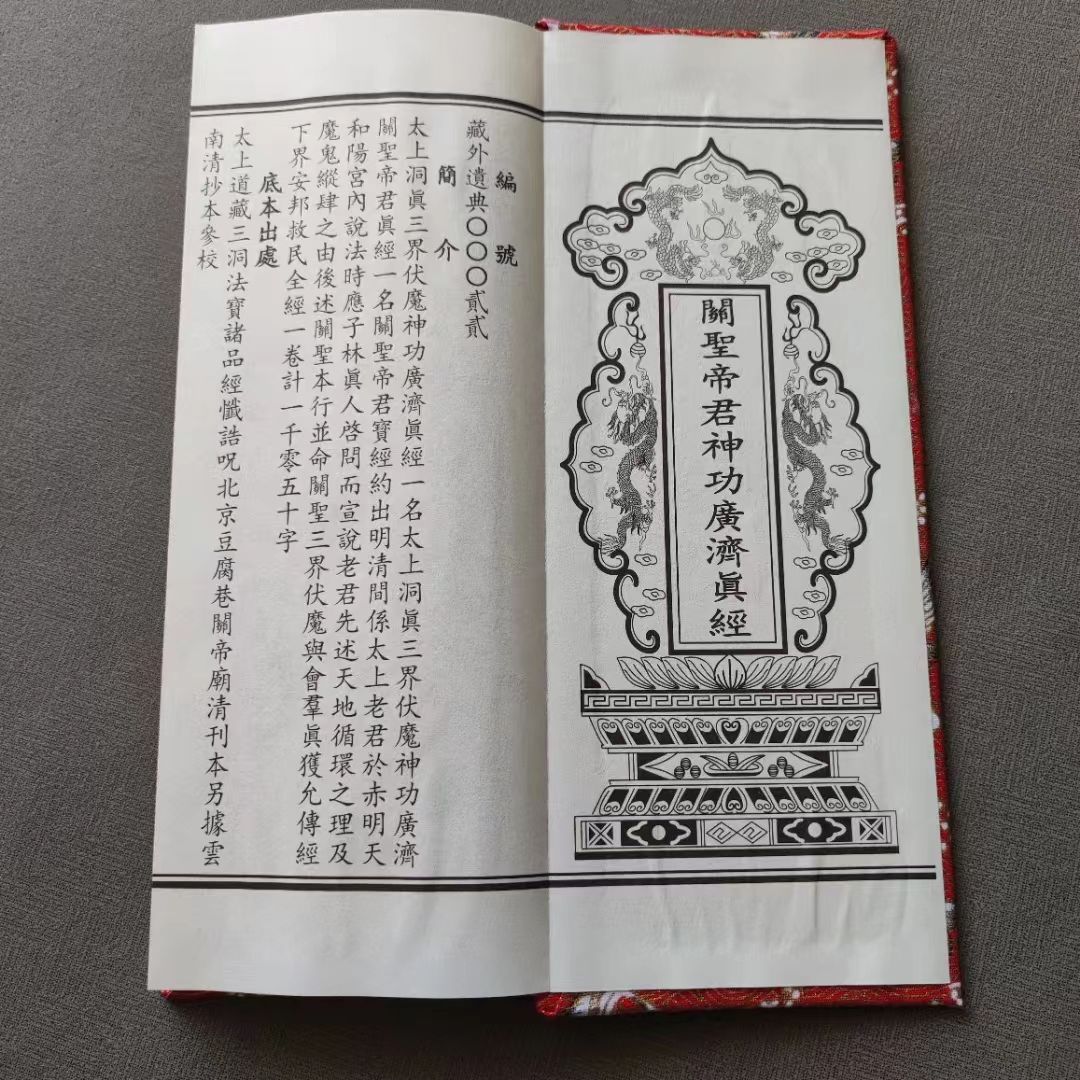 關聖帝君神功廣濟眞經
編號
藏外遺典〇〇〇貳貳
簡介
太上洞眞三界伏魔神功廣濟眞經一名太上洞眞三界伏魔神功廣濟
關聖帝君眞經一名關聖帝君寶經約出明清間係太上老君於赤明天
和陽宮內說法時應子林眞人啓問而宣說老君先述天地循環之理及
魔鬼縱肆之由後述關聖本行並命關聖三界伏魔與會羣眞獲允傳經
下界安邦救民全經一卷計一千零五十字
底本出處
太上道藏三洞法寶諸品經懺誥呪北京豆腐巷關帝廟清刊本另據雲
南清抄本參校